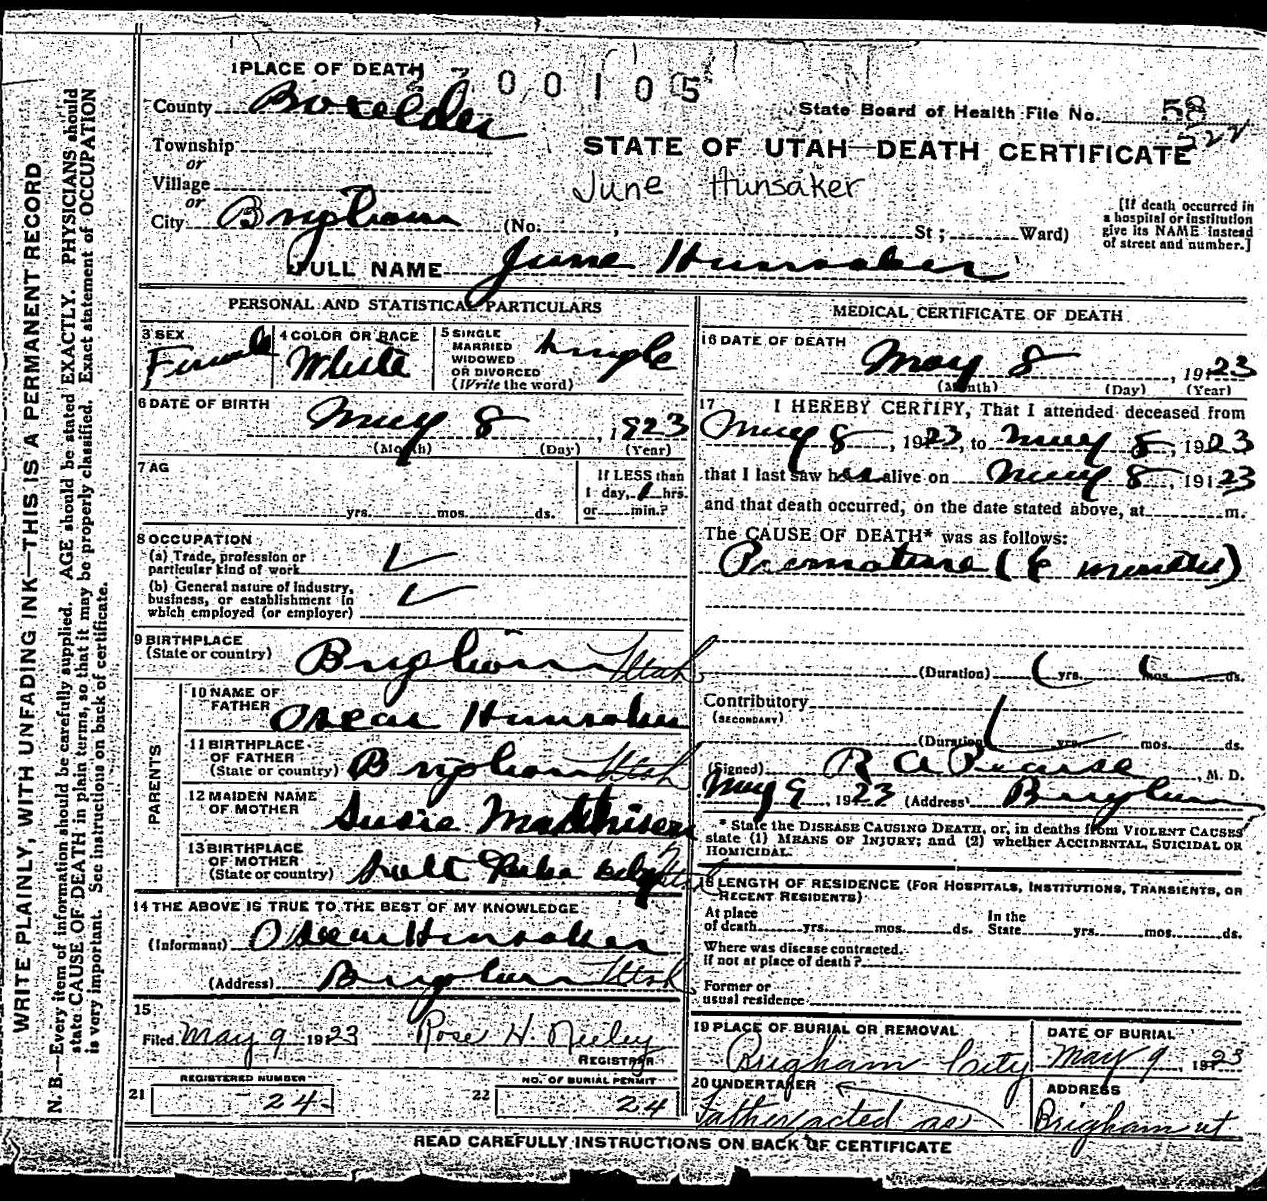 WRITE PLAINLY, WITH UNFADING INK—THIS IS A PERMANENT RECORD
N. B.—Every item of information should be carefully supplied. AGE should be stated EXACTLY. PHYSICIANS should
state CAUSE OF DEATH in plain terms, so that it may be properly classified. Exact statement of OCCUPATION
is very important. See instructions on back of certificate.
1 PLACE OF DEATH
00105
County Boxelder
State Board of Health File No. 58
522
Township
or
STATE OF UTAH—DEATH CERTIFICATE
Village
or
June Hunsaker
City Brigham (No. , St ; Ward)
[If death occurred in
a hospital or institution
give its NAME instead
of street and number.]
FULL NAME June Hunsaker
PERSONAL AND STATISTICAL PARTICULARS
3 SEX Female
4 COLOR OR RACE White
5 SINGLE
MARRIED
WIDOWED
OR DIVORCED
(Write the word) Single
6 DATE OF BIRTH
May 8, 1923
(Month) (Day) (Year)
7 AG
yrs. mos. ds.
If LESS than
1 day, 1 hrs.
or min.?
8 OCCUPATION
(a) Trade, profession or
particular kind of work
(b) General nature of industry,
business, or establishment in
which employed (or employer)
9 BIRTHPLACE
(State or country) Brigham Utah
PARENTS
10 NAME OF
FATHER Oscar Hunsaker
11 BIRTHPLACE
OF FATHER
(State or country) Brigham Utah
12 MAIDEN NAME
OF MOTHER Susie Mathisen
13 BIRTHPLACE
OF MOTHER
(State or country) Salt Lake City
14 THE ABOVE IS TRUE TO THE BEST OF MY KNOWLEDGE
(Informant) Oscar Hunsaker
(Address) Brigham Utah
15
Filed May 9 1923 Rose H. Neeley
REGISTRAR
21 REGISTERED NUMBER
24
22 NO. OF BURIAL PERMIT
24
MEDICAL CERTIFICATE OF DEATH
16 DATE OF DEATH
May 8, 1923
(Month) (Day) (Year)
17 I HEREBY CERTIFY, That I attended deceased from
May 8, 1923, to May 8, 1923
that I last saw her alive on May 8, 1923
and that death occurred, on the date stated above, at m.
The CAUSE OF DEATH* was as follows:
Premature (6 months)
(Duration) yrs. mos. ds.
Contributory
(SECONDARY)
(Duration) yrs. mos. ds.
(Signed) R A Pearse, M. D.
May 9, 1923 (Address) Brigham
* State the DISEASE CAUSING DEATH, or, in deaths from VIOLENT CAUSES
state (1) MEANS OF INJURY; and (2) whether ACCIDENTAL, SUICIDAL OR
HOMICIDAL.
18 LENGTH OF RESIDENCE (FOR HOSPITALS, INSTITUTIONS, TRANSIENTS, OR
RECENT RESIDENTS)
At place
of death yrs. mos. ds.
In the
State yrs. mos. ds.
Where was disease contracted.
if not at place of death?
Former or
usual residence
19 PLACE OF BURIAL OR REMOVAL
Brigham City
DATE OF BURIAL
May 9, 1923
20 UNDERTAKER
Father acted as
ADDRESS
Brigham ut
READ CAREFULLY INSTRUCTIONS ON BACK OF CERTIFICATE